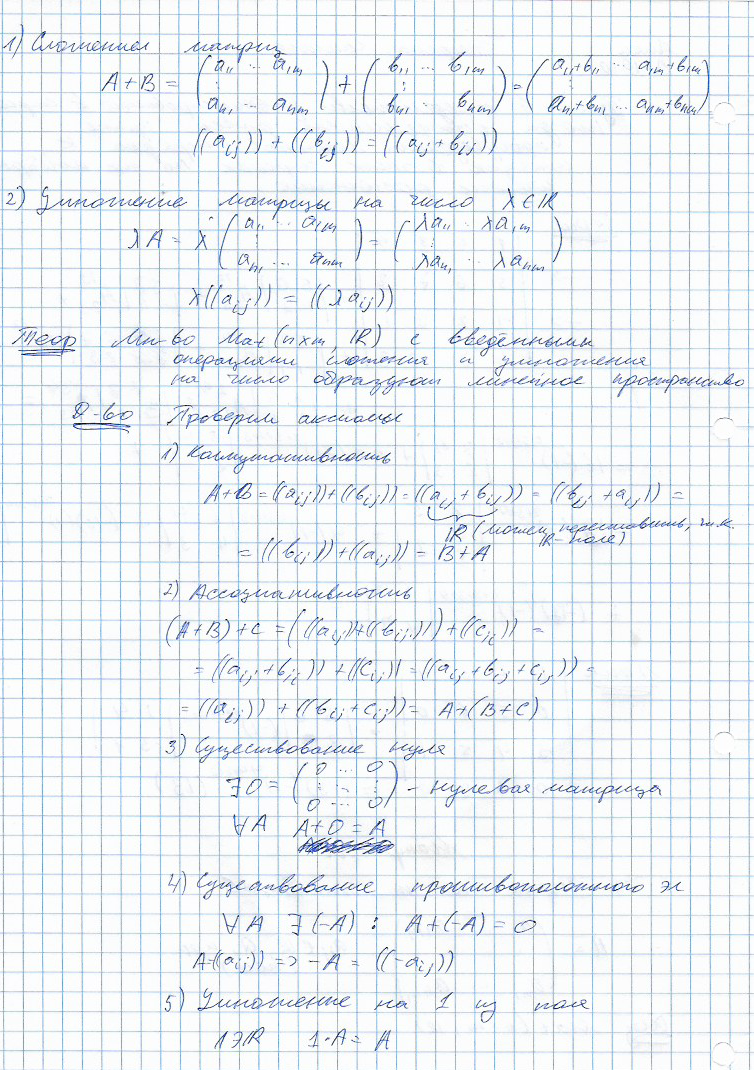 1) Сложение матриц
A+B = (a₁₁ ... a₁ₘ aₙ₁ ... aₙₘ) + (b₁₁ ... b₁ₘ ⋮ bₙ₁ ... bₙₘ) = (a₁₁+b₁₁ ... a₁ₘ+b₁ₘ ⋮ aₙ₁+bₙ₁ ... aₙₘ+bₙₘ)
((aᵢⱼ)) + ((bᵢⱼ)) = ((aᵢⱼ + bᵢⱼ))
2) Умножение матрицы на число λ∈ℝ
λA = λ (a₁₁ ... a₁ₘ ⋮ aₙ₁ ... aₙₘ) = (λa₁₁ ... λa₁ₘ ⋮ λaₙ₁ ... λaₙₘ)
λ((aᵢⱼ)) = ((λaᵢⱼ))
Теор Мн-во Mat (n×m, ℝ) с введёнными
операциями сложения и умножения
на число образуют линейное пространство
Д-во Проверим аксиомы
1) Коммутативность
A+B = ((aᵢⱼ))+((bᵢⱼ)) = ((aᵢⱼ + bᵢⱼ)) = ((bᵢⱼ + aᵢⱼ)) =
ℝ (можем переставить, т.к.
ℝ - поле)
= ((bᵢⱼ)) + ((aᵢⱼ)) = B+A
2) Ассоциативность
(A+B)+C = (((aᵢⱼ))+((bᵢⱼ))) + ((cᵢⱼ)) =
= ((aᵢⱼ + bᵢⱼ)) + ((cᵢⱼ)) = ((aᵢⱼ + bᵢⱼ + cᵢⱼ)) =
= ((aᵢⱼ)) + ((bᵢⱼ + cᵢⱼ)) = A+(B+C)
3) Существование нуля
∃0 = (0 ... 0 ⋮ ⋱ ⋮ 0 ... 0) - нулевая матрица
∀A A+0 = A
4) Существование противоположного эл
∀A ∃(-A) : A+(-A) = 0
A=((aᵢⱼ)) => -A = ((-aᵢⱼ))
5) Умножение на 1 из поля
1∋ℝ 1·A = A